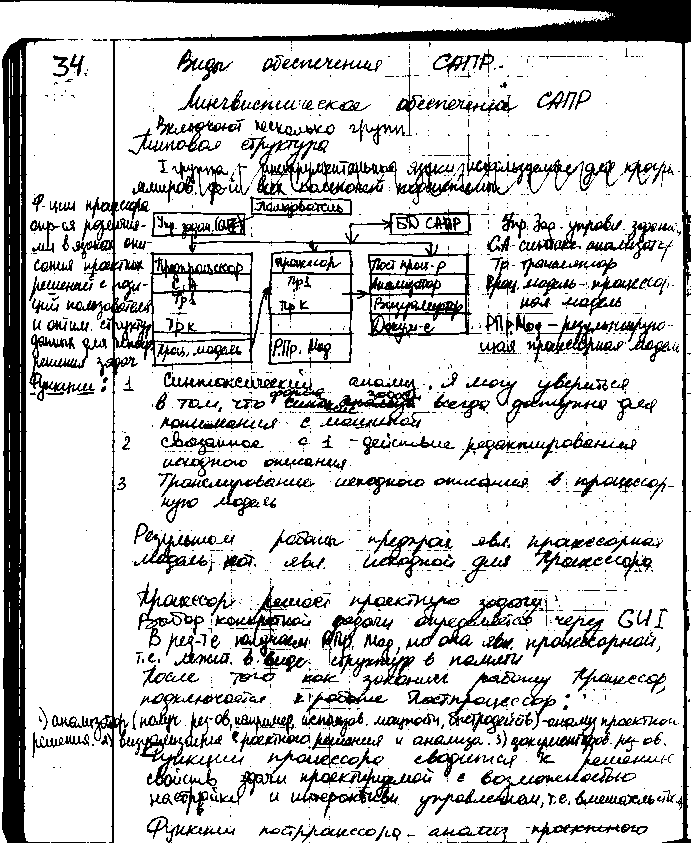 34.
Виды обеспечения САПР.
Лингвистическое обеспечение САПР
Включают несколько групп
Типовая структура
I группа - инструментальные языки, используемые для
Ф-ции процессора
языках опи-
сания проектных
решений с
ций пользователя
и оптим. структур
данных для
решения задач
Пользователь
Упр. задан.
БД САПР
Препроцессор
С.А
Тр1
Тр к
Проц. модель
Процессор
Пр1
Пр К
Р.Пр. Мод
Пост проц-р
Анализатор
Визуализатор
Докум-с
Упр. Зад. управл. задани
С.А - синтакс. анализатор
Тр - транслятор
Проц. модель - процессор-
ная модель
РПрМод - результирую-
щая процессорная модель
Функции:
1 Синтаксический анализ. Я могу уверится
в том, что всегда доступна для
понимания с машиной
2 связанное с 1 - действие редактирования
исходного описания
3 Транслирование исходного описания в процессор-
ную модель
Результатом работы препроц явл. процессорная
модель, кот. явл. исходной для Процессора
Процессор решает проектную задачу
Выбор конкретной задачи определяется через GUI
В рез-те получаем РПр Мод, но она явл. процессорной,
т.е. лежит в виде структур в памяти
После того как закончил работу Процессор,
подключается к работе Постпроцессор:
1) анализатор (получ. рез-ов, например, использов. мощности, быстродейств) - анализ проектного
решения. 2) визуализация проектного решения и анализа. 3) документиров. рез-ов.
Функции процессора сводится к решению
свойств задачи проектируемой с возможностью
настройки и интерактивн управлением, т.е.
Функции постпроцессора - анализ проектного